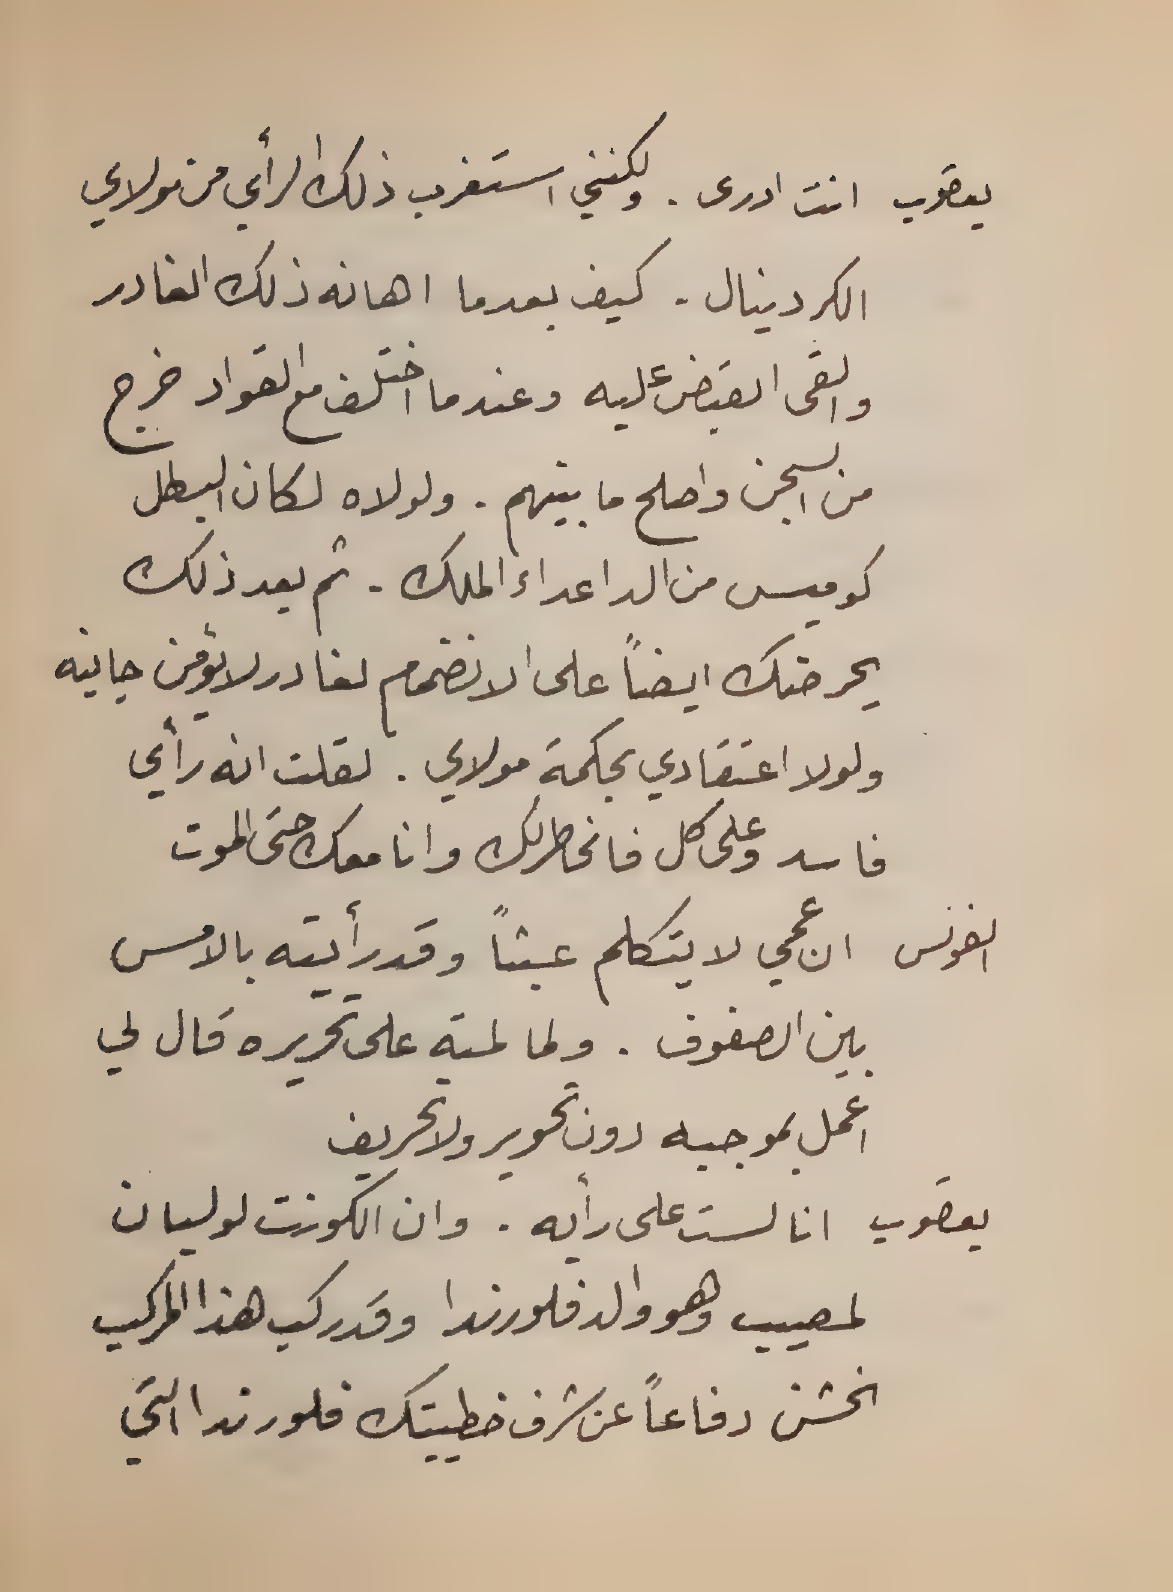 يعقوب انت ادرى . ولكنني استغرب ذلك الرأي من مولاي
الكردينال . كيف بعدما اهانه ذلك الغادر
والقى القبض عليه وعندما اختلف مع القواد خرج
من السجن واصلح ما بينهم . ولولاه لكان البطل
كوميس من الد اعداء الملك . ثم بعد ذلك
يحرضك ايضاً على الانضمام لغادر لا يؤمن جانبه
ولولا اعتقادي بحكمة مولاي . لقلت انه رأي
فاسد وعلى كل فالخاطر لك وانا معك حتى الموت
الفونس ان عمي لا يتكلم عبثاً وقد رأيته بالامس
بين الصفوف . ولما لمته على تحريره قال لي
اعمل بموجبه دون تحوير ولا تحريف
يعقوب انا لست على رأيه . وان الكونت لوليان
لمصيب وهو والد فلورندا وقد ركب هذا المركب
الخشن دفاعاً عن شرف خطيبتك فلورندا التي